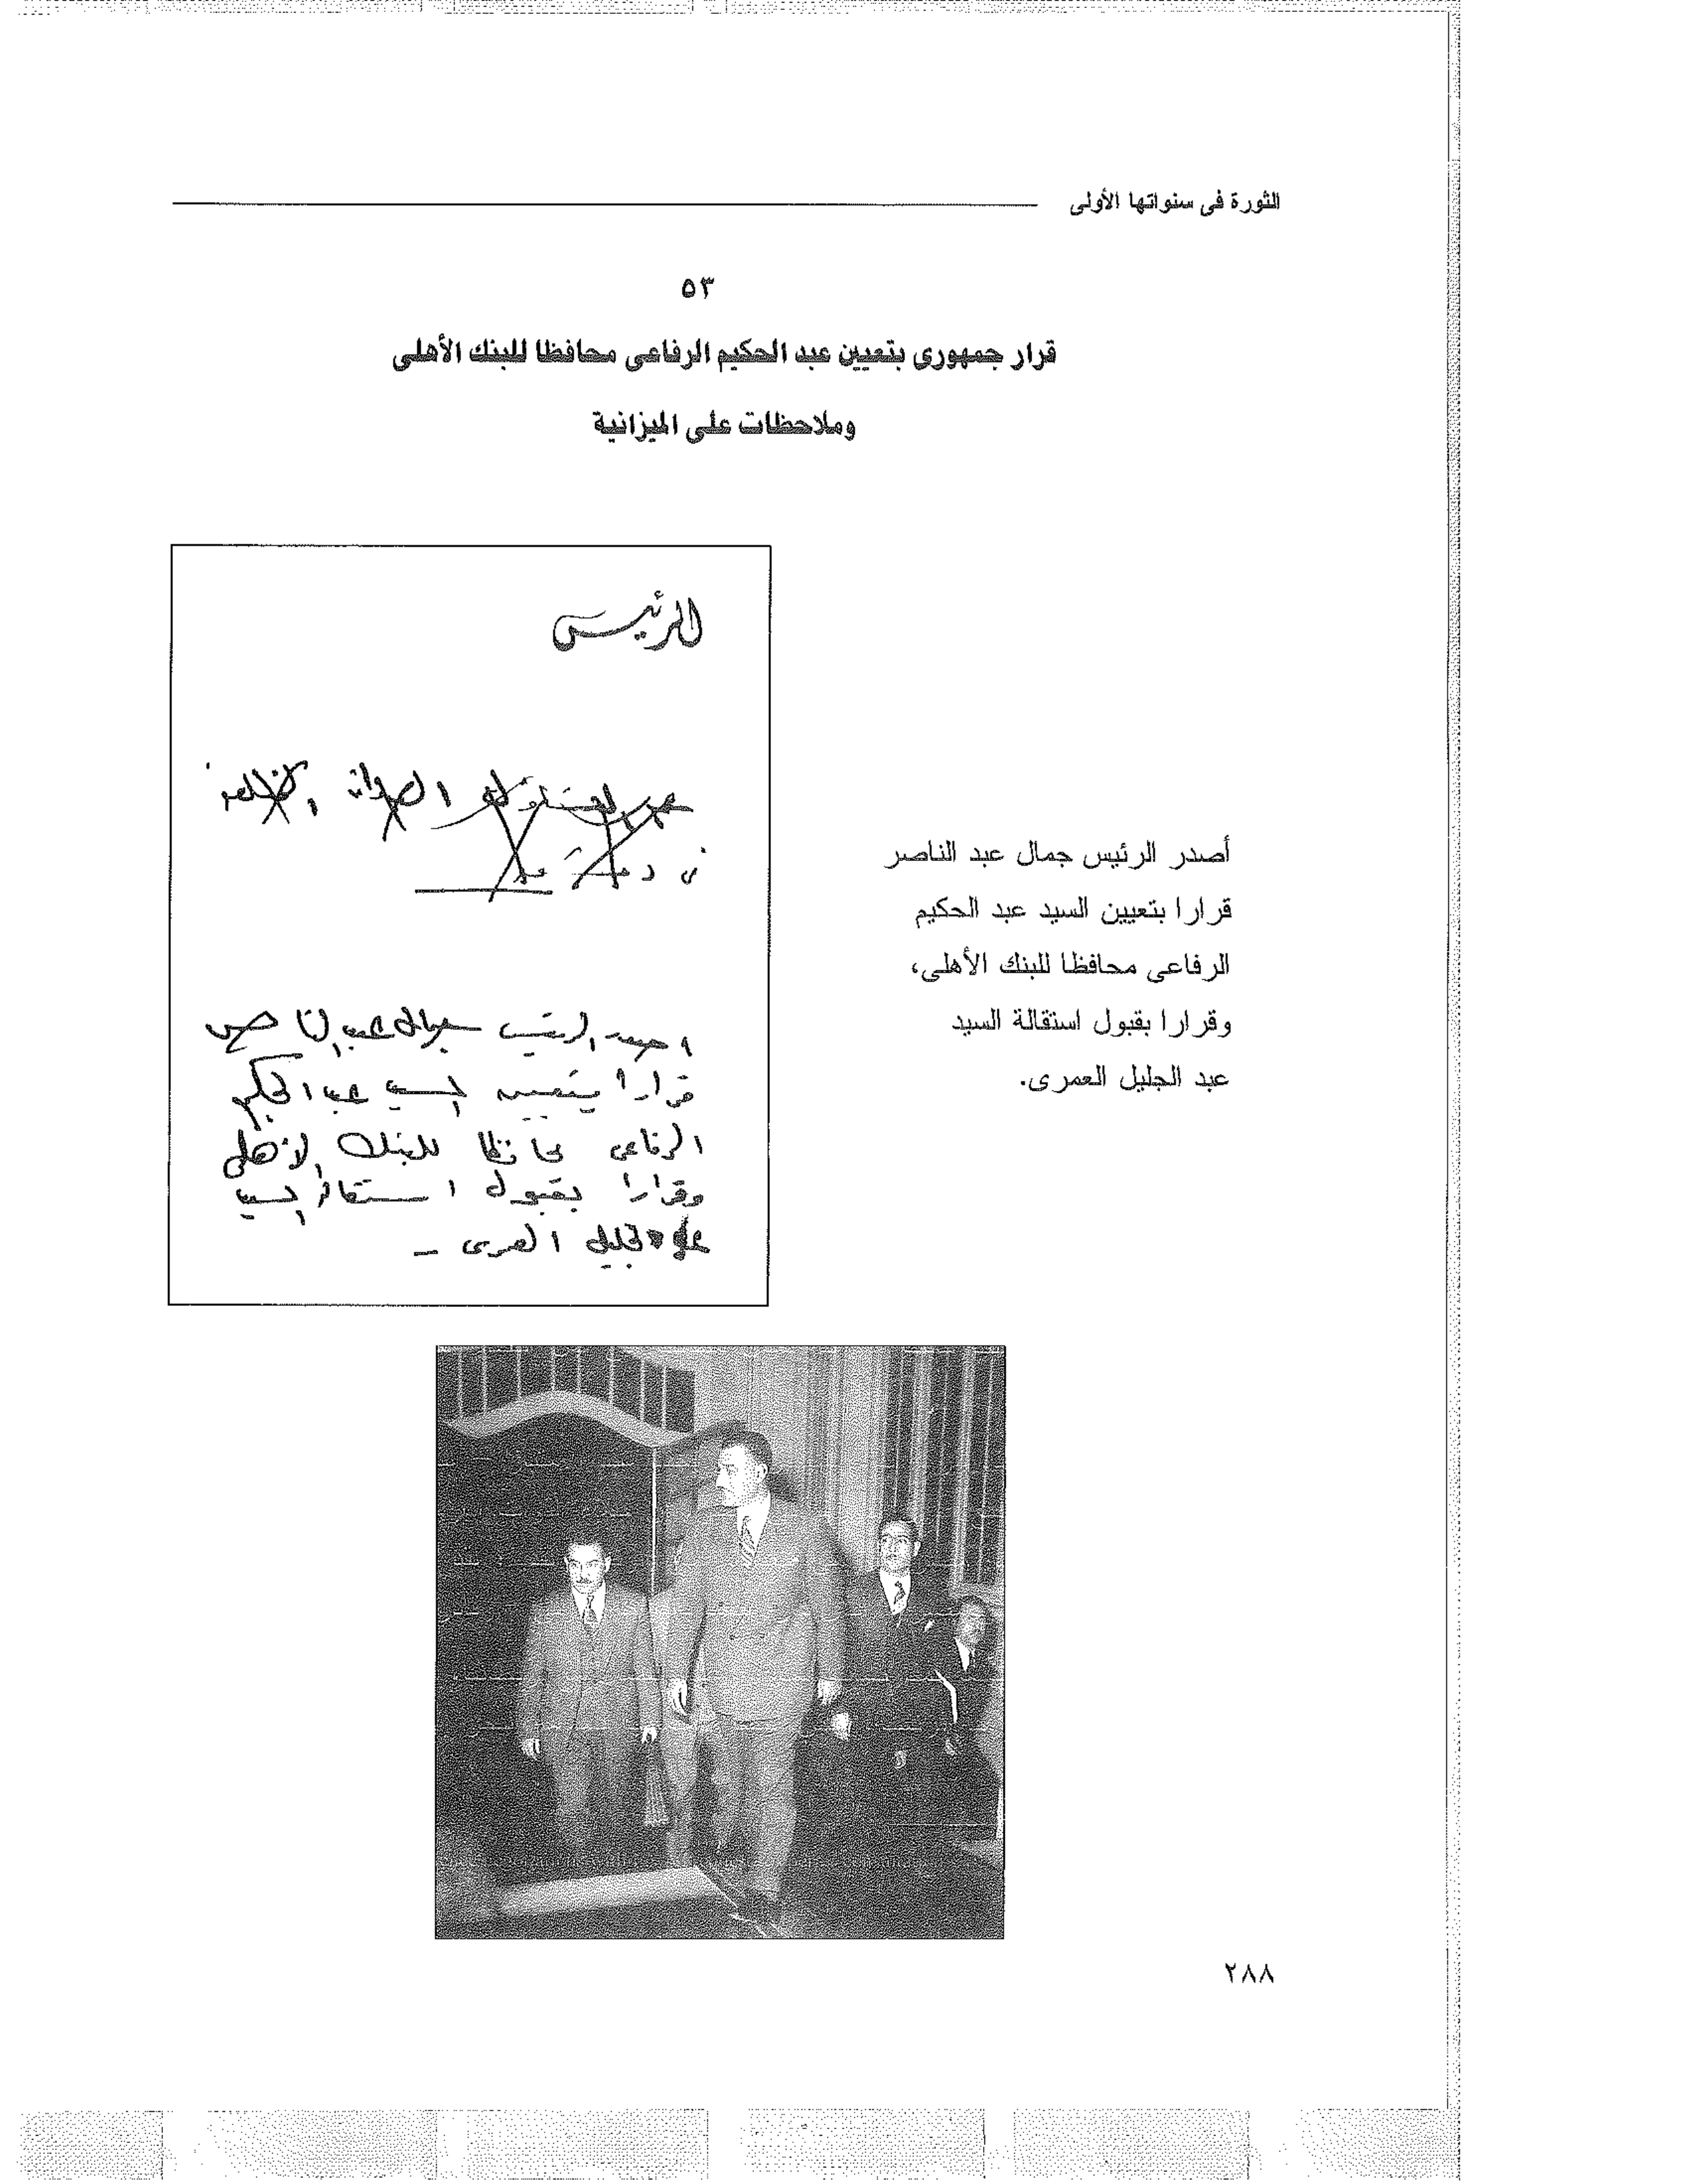 الثورة فى سنواتها الأولى
٥٣
قرار جمهورى بتعيين عبد الحكيم الرفاعى محافظا للبنك الأهلى
وملاحظات على الميزانية
أصدر الرئيس جمال عبد الناصر
قرارا بتعيين السيد عبد الحكيم
الرفاعى محافظا للبنك الأهلى،
وقرارا بقبول استقالة السيد
عبد الجليل العمرى.
الرئيس
اصدر الرئيس جمال عبد الناصر
قرارا بتعيين السيد عبد الحكيم
الرفاعى محافظا للبنك الاهلى
وقرارا بقبول استقالة السيد
عبد الجليل العمرى -
٢٨٨